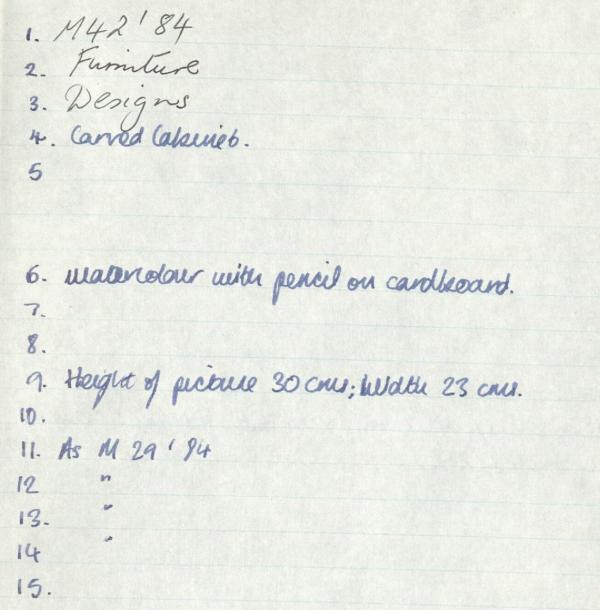 1. M42'84
2. Furniture
3. Designs
4. Carved Cabinets.
5
6. watercolour with pencil on cardboard.
7.
8.
9. Height of picture 30 cms; Width 23 cms.
10.
11. As M 29 '84
12 "
13. "
14 "
15.